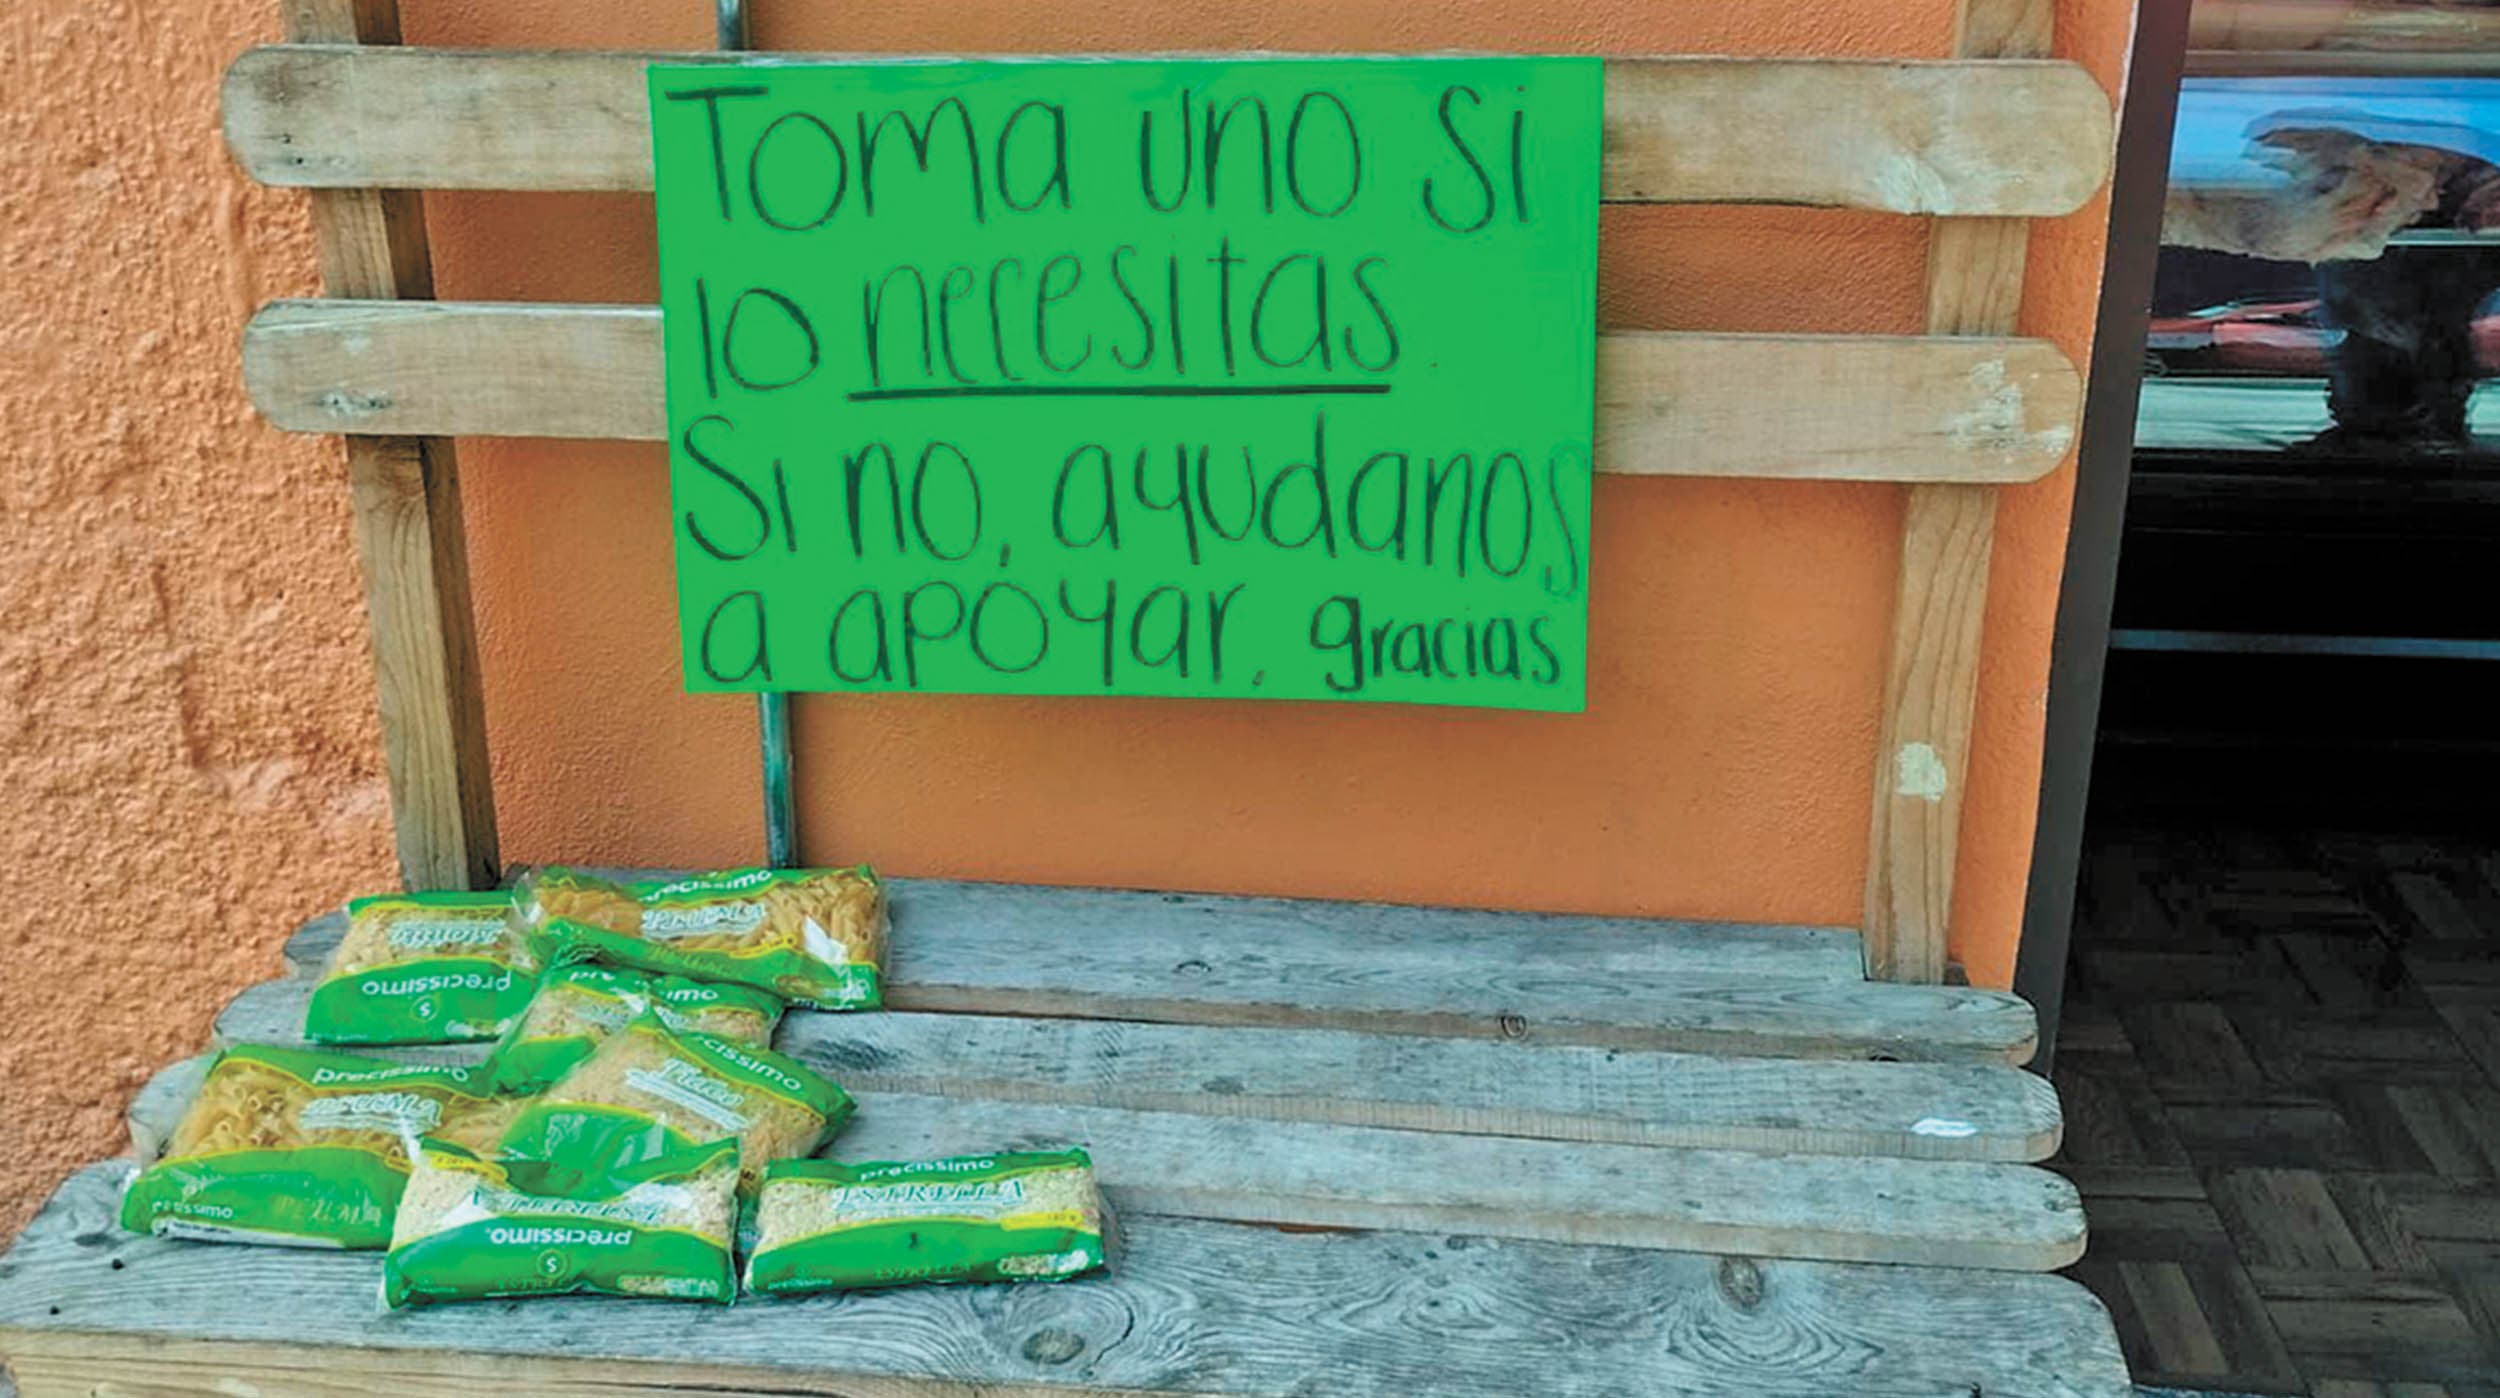 Toma uno si
lo necesitas
Si no, ayudanos
a apoyar. gracias
precissimo
PLUMA
precissimo
precissimo
PLUMA
precissimo
precissimo
ESTRELLA
precissimo
ESTRELLA
precissimo